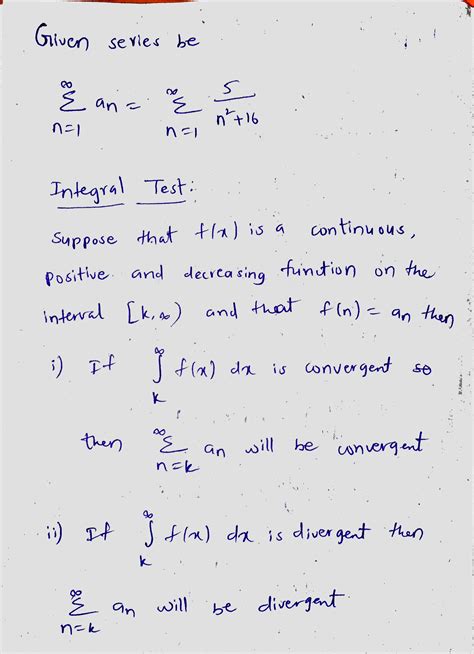 Given series be
∞ ∞
Σ an = Σ 5/(n²+16)
n=1 n=1
Integral Test:
Suppose that f(x) is a continuous,
positive and decreasing function on the
interval [k,∞) and that f(n) = an then
i) If ∫_k^∞ f(x) dx is convergent so
then Σ_{n=k}^∞ an will be convergent
ii) If ∫_k^∞ f(x) dx is divergent then
Σ_{n=k}^∞ an will be divergent